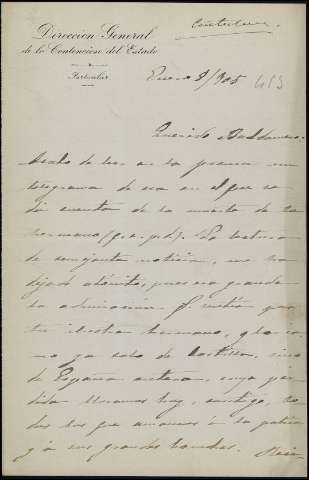 Contestada.
Dirección General
de lo Contencioso del Estado
Particular
Enero 8/905
Querido Baldomero:
Acabo de leer en la prensa un
telegrama de esa en el que se
dá cuenta de la muerte de tu
hermano (q. e. p. d). La lectura
de semejante noticia, me ha
dejado atónito, pues era grande
la admiración que sentía por
tu ilustre hermano, gloria
no ya solo de Castilla, sino
de España entera, cuya pér-
dida lloramos hoy, contigo, to-
dos los que amamos á la patria
y á sus grandes hombres.